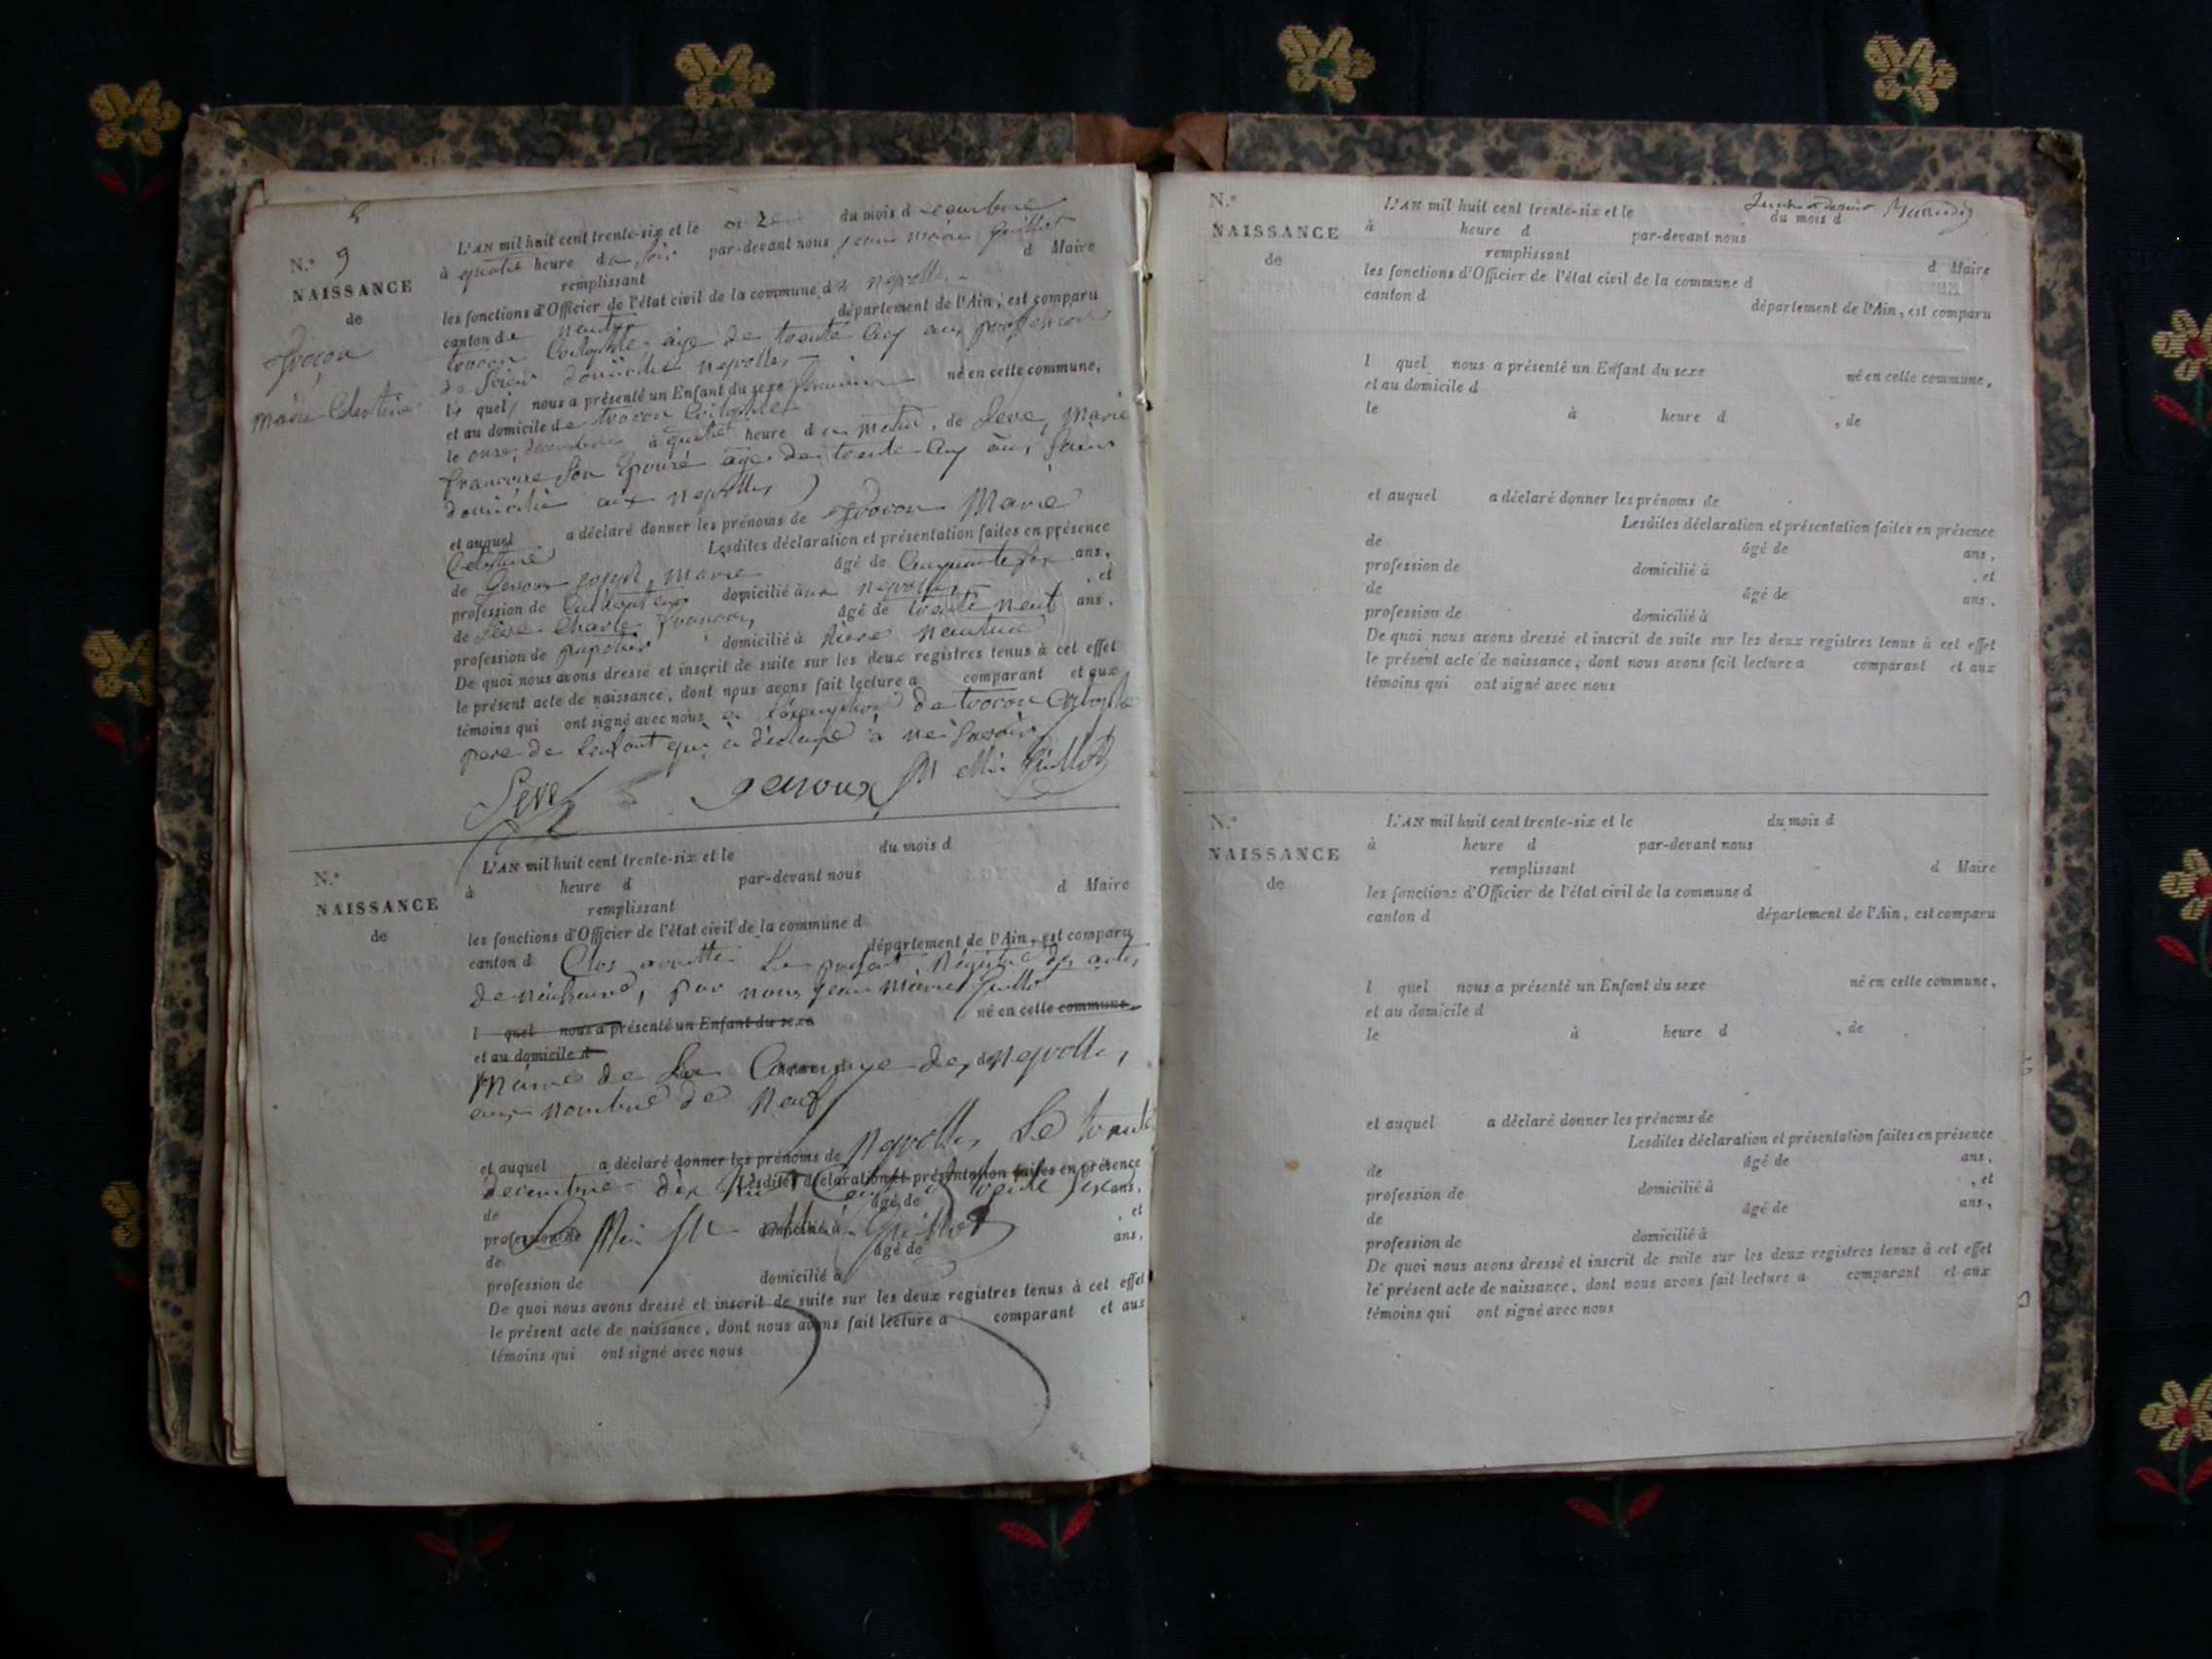 N.° 9
NAISSANCE
de
Trocon
Marie Celestine
L'AN mil huit cent trente-six et le onze du mois decembre
à quatre heure du soir par-devant nous jean marie Guillot
remplissant d Maire
les fonctions d'Officier de l'état civil de la commune de neyrolle
canton de nantua département de l'Ain, est comparu
trocon age de trente cinq ans
domicilié neyrolles
le quel nous a présenté un Enfant du sexe feminin né en cette commune,
et au domicile de trocon
le onze decembre à quatre heure du matin, de Seve, Marie
francoise son Epouse agé de trente cinq ans
domicilié aux neyrolles
et auquel a déclaré donner les prénoms de Trocon Marie
Celestine Lesdites déclaration et présentation faites en présence
de Genoux joseph Marie âgé de Cinquante six ans,
profession de Cultivateur domicilié aux neyrolles, et
de Seve Charle françois âgé de trente neuf ans,
profession de papetier domicilié à nantua
De quoi nous avons dressé et inscrit de suite sur les deux registres tenus à cet effet
le présent acte de naissance, dont nous avons fait lecture a comparant et aux
témoins qui ont signé avec nous a l'exception de trocon
pere de l'enfant qui a declaré a ne savoir
Seve genoux Guillot
N.°
NAISSANCE
de
L'AN mil huit cent trente-six et le du mois d
à heure d par-devant nous
remplissant d Maire
les fonctions d'Officier de l'état civil de la commune d
canton d département de l'Ain, est comparu
Clos arretté Le present Registre des actes
de naissance, par nous jean marie Guillot
l quel nous a présenté un Enfant du sexe né en cette commune,
et au domicile d
Maire de La Commune des neyrolles,
aux nombre de Neuf
Neyrolles Le trente
et auquel a déclaré donner les prénoms de
Lesdites déclaration et présentation faites en présence
decembre dix huit Cent trente six
de âgé de ans,
Le Guillot
profession de domicilié à , et
de âgé de ans,
profession de domicilié à
De quoi nous avons dressé et inscrit de suite sur les deux registres tenus à cet effet
le présent acte de naissance, dont nous avons fait lecture a comparant et aux
témoins qui ont signé avec nous
N.°
NAISSANCE
de
L'AN mil huit cent trente-six et le du mois d
à heure d par-devant nous
remplissant d Maire
les fonctions d'Officier de l'état civil de la commune d
canton d département de l'Ain, est comparu
l quel nous a présenté un Enfant du sexe né en cette commune,
et au domicile d
le à heure d , de
et auquel a déclaré donner les prénoms de
Lesdites déclaration et présentation faites en présence
de âgé de ans,
profession de domicilié à , et
de âgé de ans,
profession de domicilié à
De quoi nous avons dressé et inscrit de suite sur les deux registres tenus à cet effet
le présent acte de naissance, dont nous avons fait lecture a comparant et aux
témoins qui ont signé avec nous
N.°
NAISSANCE
de
L'AN mil huit cent trente-six et le du mois d
à heure d par-devant nous
remplissant d Maire
les fonctions d'Officier de l'état civil de la commune d
canton d département de l'Ain, est comparu
l quel nous a présenté un Enfant du sexe né en cette commune,
et au domicile d
le à heure d , de
et auquel a déclaré donner les prénoms de
Lesdites déclaration et présentation faites en présence
de âgé de ans,
profession de domicilié à , et
de âgé de ans,
profession de domicilié à
De quoi nous avons dressé et inscrit de suite sur les deux registres tenus à cet effet
le présent acte de naissance, dont nous avons fait lecture a comparant et aux
témoins qui ont signé avec nous